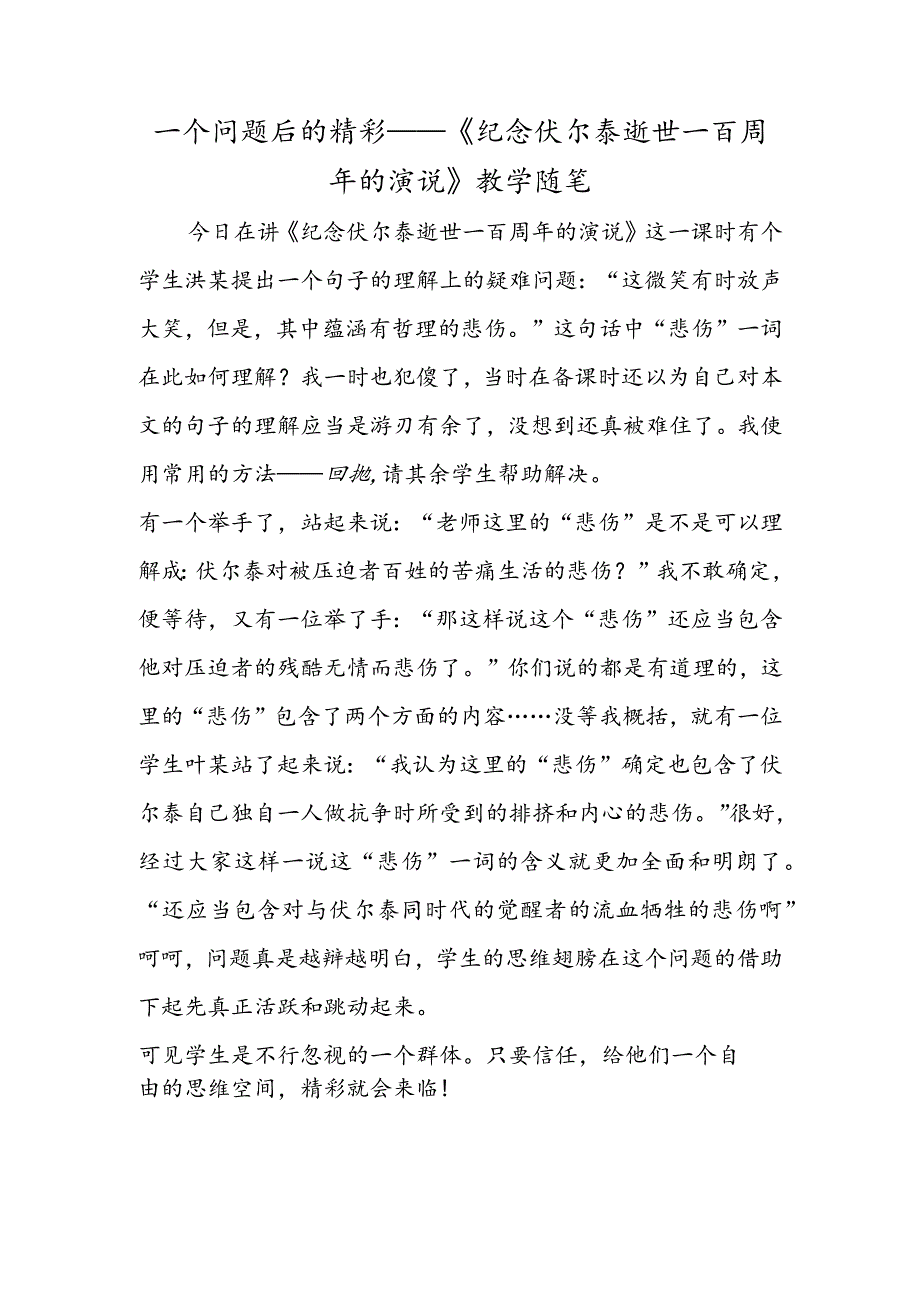 一个问题后的精彩——《纪念伏尔泰逝世一百周
年的演说》教学随笔
今日在讲《纪念伏尔泰逝世一百周年的演说》这一课时有个
学生洪某提出一个句子的理解上的疑难问题：“这微笑有时放声
大笑，但是，其中蕴涵有哲理的悲伤。”这句话中“悲伤”一词
在此如何理解？我一时也犯傻了，当时在备课时还以为自己对本
文的句子的理解应当是游刃有余了，没想到还真被难住了。我使
用常用的方法——回抛,请其余学生帮助解决。
有一个举手了，站起来说：“老师这里的“悲伤”是不是可以理
解成：伏尔泰对被压迫者百姓的苦痛生活的悲伤？”我不敢确定，
便等待，又有一位举了手：“那这样说这个“悲伤”还应当包含
他对压迫者的残酷无情而悲伤了。”你们说的都是有道理的，这
里的“悲伤”包含了两个方面的内容……没等我概括，就有一位
学生叶某站了起来说：“我认为这里的“悲伤”确定也包含了伏
尔泰自己独自一人做抗争时所受到的排挤和内心的悲伤。”很好，
经过大家这样一说这“悲伤”一词的含义就更加全面和明朗了。
“还应当包含对与伏尔泰同时代的觉醒者的流血牺牲的悲伤啊”
呵呵，问题真是越辩越明白，学生的思维翅膀在这个问题的借助
下起先真正活跃和跳动起来。
可见学生是不行忽视的一个群体。只要信任，给他们一个自
由的思维空间，精彩就会来临！